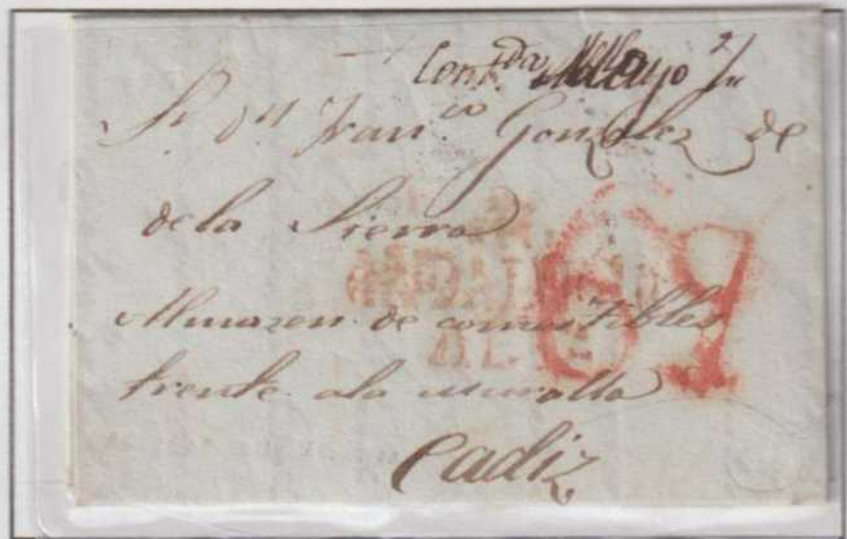 Cont.da Mayo 2/
Sr. Dn Fran.co Gonzalez de
de la Sierra
Almazen de comestibles
frente ala muralla
Cadiz
ANDALUCIA
BAJA